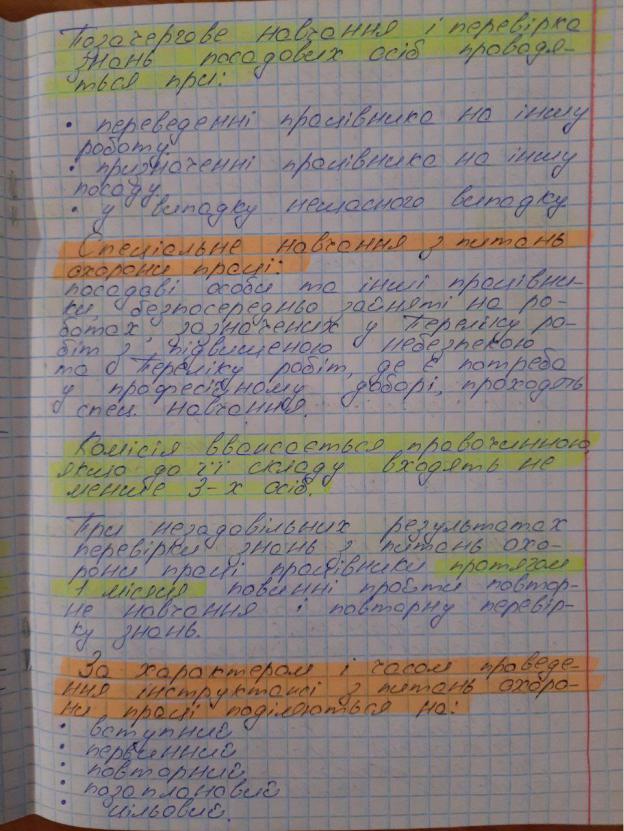 Позачергове навчання і перевірка
знань посадових осіб проводя-
ться при:
• переведенні працівника на іншу
роботу
• призначенні працівника на іншу
посаду
• у випадку нещасного випадку
Спеціальне навчання з питань
охорони праці:
посадові особи та інші працівни-
ки, безпосередньо зайняті на ро-
ботах, зазначених у Переліку ро-
біт з підвищеною небезпекою
та Переліку робіт, де є потреба
у професійному доборі, проходять
спец. навчання.
Комісія вважається правочинною,
якщо до її складу входять не
менше 3-х осіб.
При незадовільних результатах
перевірки знань з питань охо-
рони праці працівники протягом
1 місяця повинні пройти повтор-
не навчання і повторну перевір-
ку знань.
За характером і часом проведе-
ння інструктажі з питань охоро-
ни праці поділяються на:
• вступний
• первинний
• повторний
• позаплановий
• цільовий.